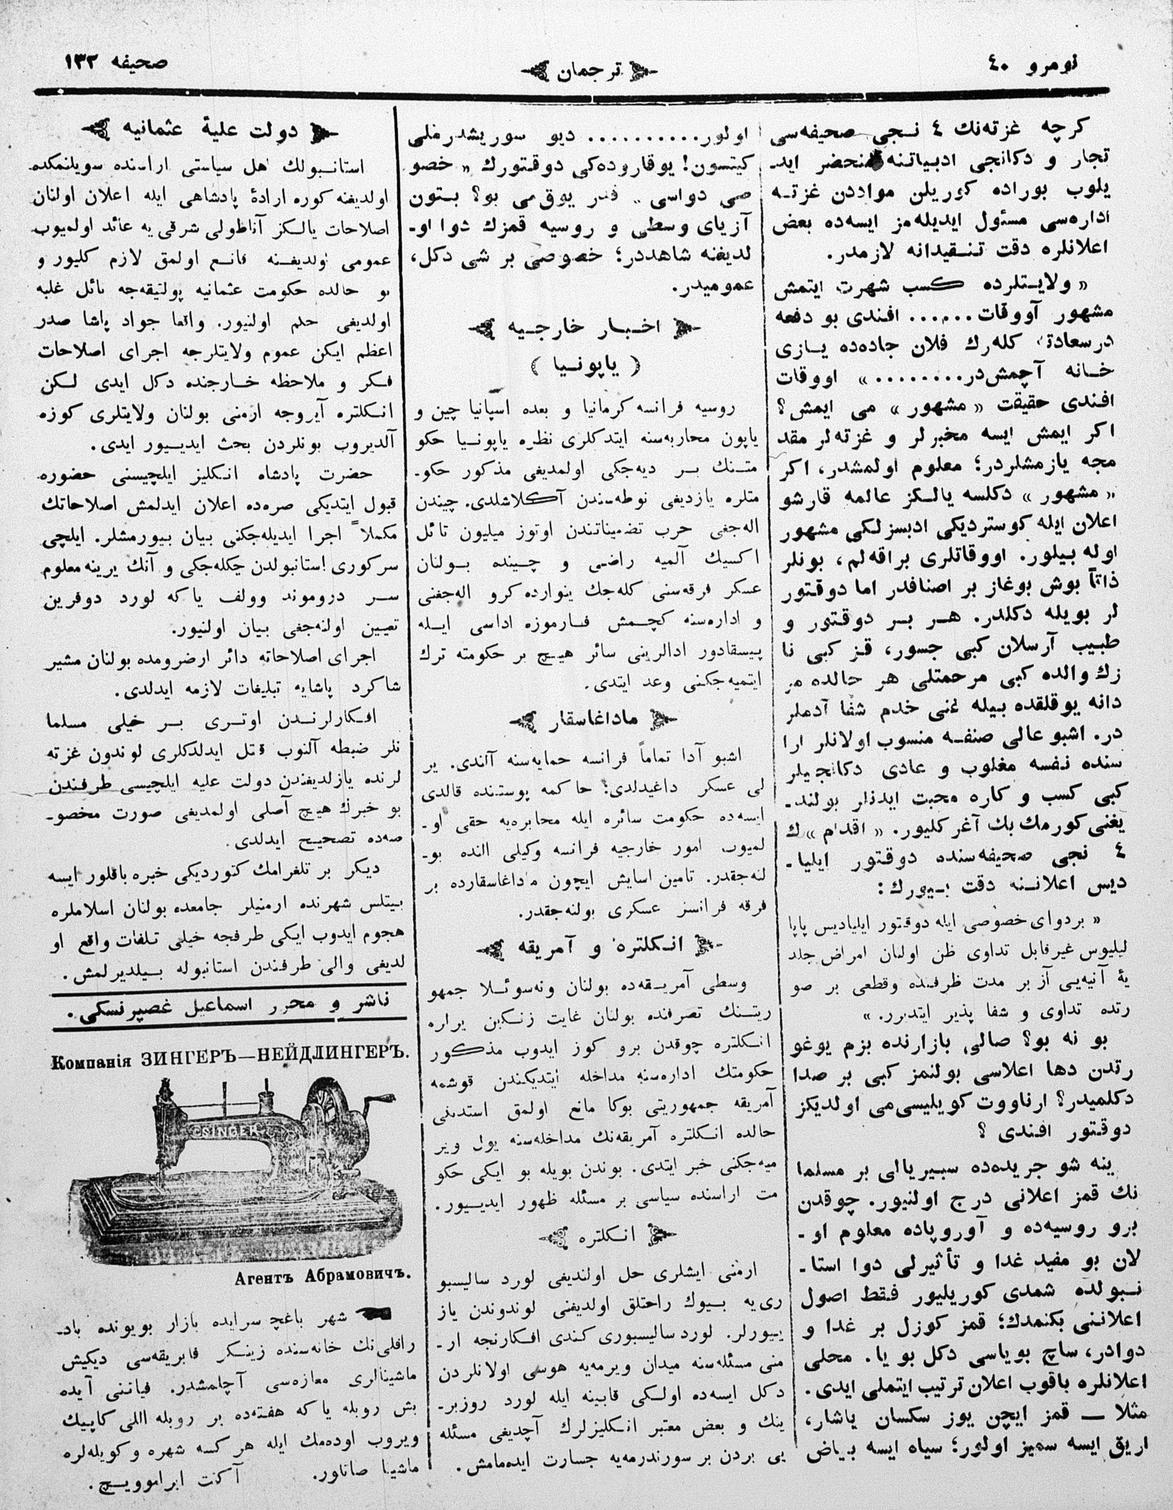 نومرو ٤٠
ترجمان
صحيفه ١٣٢
كرچه غزته‌نك ٤ نجى صحيفه‌سى
تجار و دكانجى ادبياتنه منحضر ايد۔
يلوب بوراده كوريلن مواددن غزته
اداره‌سى مسئول ايديله‌مز ايسه‌ده بعض
اعلانلره دقت تنقيدانه لازمدر.
« ولايتلرده كسب شهرت ايتمش
مشهور آووقات...... افندى بو دفعه
درسعادة كله‌رك فلان جاده‌ده يازى
خانه آچمش‌در........ » اووقات
افندى حقيقت « مشهور » مى ايمش؟
اكر ايمش ايسه مخبرلر و غزته‌لر مقد
مجه يازمشلردر؛ معلوم اولمشدر، اكر
« مشهور » دكلسه يالكز عالمه قارشو
اعلان ايله كوسترديكى ادبسزلكى مشهور
اوله بيلور. اووقاتلرى براقه‌لم، بونلر
ذاتاً بوش بوغاز بر اصنافدر اما دوقتور
لر بويله دكلدر. هر بر دوقتور و
طبيب آرسلان كبى جسور، قز كبى نا
زك والده كبى مرحمتلى هر حالده مر
دانه يوقلقده بيله غنى خدم شفا آدملر
در. اشبو عالى صنفه منسوب اولانلر ارا
سنده نفسه مغلوب و عادى دكانجيلر
كبى كسب و كاره محبت ايدنلر بولند۔
يغنى كورمك بك آغر كليور. « اقدام » ك
٤ نجى صحيفه‌سنده دوقتور ايليا۔
ديس اعلاننه دقت بيورك:
« بردواى خصوصى ايله دوقتور ايلياديس پاپا
ليليوس غيرقابل تداوى ظن اولنان امراض جلد
يۀ آتيه‌يى آز بر مدت ظرفنده وقطعى بر صو
رتده تداوى و شفا پذير ايتديرر. »
بو نه بو؟ صالى بازارنده بزم يوغو
رتدن دها اعلاسى بولنمز كبى بر صدا
دكلميدر؟ ارناووت كويليسى‌مى اولديكز
دوقتور افندى ؟
ينه شو جريده‌ده سبيريالى بر مسلما
نك قمز اعلانى درج اولنيور. چوقدن
برو روسيه‌ده و آوروپاده معلوم او۔
لان بو مفيد غدا و تأثيرلى دوا استا۔
نبولده شمدى كوريليور فقط اصول
اعلاننى بكنمدك؛ قمز كوزل بر غدا و
دوادر، ساچ بوياسى دكل بو يا. محلى
اعلانلره باقوب اعلان ترتيب ايتملى ايدى.
مثلا — قمز ايچن يوز سكسان ياشار،
اريق ايسه سميز اولور؛ سياه ايسه بياض
اولور.......... ديو سوريشدرملى
كيتسون! يوقاروده‌كى دوقتورك « خصو
صى دواسى » قمز يوق‌مى بو؟ بتون
آزياى وسطى و روسيه قمزك دوا او۔
لديغنه شاهددر؛ خصوصى بر شى دكل،
عموميدر.
اخبار خارجيه
( ياپونيا )
روسيه فرانسه كرمانيا و بعده اسپانيا چين و
ياپون محاربه‌سنه ايتدكلرى نظره ياپونيا حكو
متنك بر ديه‌جكى اولمديغى مذكور حكو۔
متلره يازديغى نوطه‌سندن آكلاشلدى. چيندن
اله‌جغى حرب تضميناتندن اوتوز ميليون تائل
اكسيك آلميه راضى و چينده بولنان
عسكر فرقه‌سنى كله‌جك ينوارده كرو اله‌جغنى
و اداره‌سنه كچمش فارموزه اداسى ايله
پيسقادور ادالرينى سائر هيچ بر حكومته ترك
ايتميه‌جكنى وعد ايتدى.
ماداغاسقار
اشبو آدا تماماً فرانسه حمايه‌سنه آلندى. ير
لى عسكر داغيدلدى؛ حاكمه پوستنده قالدى
ايسه‌ده حكومت سائره ايله مخابره‌يه حقى او۔
لميوب امور خارجيه فرانسه وكيلى النده بو۔
لنه‌جقدر. تامين اسايش ايچون ماداغاسقارده بر
فرقه فرانسز عسكرى بولنه‌جقدر.
انكلتره و آمريقه
وسطى آمريقه‌ده بولنان ونه‌سوئلا جمهو
ريتنك تصرفنده بولنان غايت زنكين يرلره
انكلتره چوقدن برو كوز ايدوب مذكور
حكومتك اداره‌سنه مداخله ايتديكندن قوشمه
آمريقه جمهوريتى بوكا مانع اولمق استديى
حالده انكلتره آمريقه‌نك مداخله‌سنه يول وير
ميه‌جكنى خبر ايتدى. بوندن بويله بو ايكى حكو
مت اراسنده سياسى بر مسئله ظهور ايدييور.
انكلتره
ارمنى ايشلرى حل اولنديغى لورد ساليسبو
رى‌يه بيوك راحتلق اولديغنى لوندوندن ياز
ييورلر. لورد ساليسبورى كندى افكارنجه ار۔
منى مسئله‌سنه ميدان ويرمه‌يه هوسى اولانلردن
دكل ايسه‌ده اولكى قابينه ايله لورد روزبر۔
ينك و بعض معتبر انكليزلرك آچديغى مسئله
يى بردن بر سورندرمه‌يه جسارت ايده‌مامش.
دولت علية عثمانيه
استانبولك اهل سياستى اراسنده سويلنمكده
اولديغنه كوره ارادۀ پادشاهى ايله اعلان اولنان
اصلاحات يالكز آناطولى شرقى‌يه عائد اولميوب
عمومى اولديغنه قانع اولمق لازم كليور و
بو حالده حكومت عثمانيه پولتيقه‌جه نائل غلبه
اولديغى حلم اولنيور. واقعا جواد پاشا صدر
اعظم ايكن عموم ولايتلرجه اجراى اصلاحات
فكر و ملاحظه خارجنده دكل ايدى لكن
انكلتره آيروجه ارمنى بولنان ولايتلرى كوزه
آلديروب بونلردن بحث ايدييور ايدى.
حضرت پادشاه انكليز ايلچيسنى حضوره
قبول ايتديكى صره‌ده اعلان ايدلمش اصلاحاتك
مكملاً اجرا ايديله‌جكنى بيان بيورمشلر. ايلچى
سركورى استانبولدن چكله‌جكى و آنك يرينه معلوم
سر دروموند وولف ياكه لورد دوفرين
تعيين اولنه‌جغى بيان اولنيور.
اجراى اصلاحاته دائر ارضرومده بولنان مشير
شاكرد پاشايه تبليغات لازمه ايدلدى.
افكارلرندن اوترى بر خيلى مسلما
نلر ضبطه آلنوب قتل ايدلدكلرى لوندون غزته
لرنده يازلديغندن دولت عليه ايلچيسى طرفندن
بو خبرك هيچ آصلى اولمديغى صورت مخصو۔
صه‌ده تصحيح ايدلدى.
ديكر بر تلغرامك كتورديكى خبره باقلور ايسه
بيتلس شهرنده ارمنيلر جامعده بولنان اسلاملره
هجوم ايدوب ايكى طرفجه خيلى تلفات واقع او
لديغى والى طرفندن استانبوله بيلديرلمش.
ناشر و محرر اسماعيل غصپرنسكى.
Компанія ЗИНГЕРЪ—НЕЙДЛИНГЕРЪ.
SINGER
Агентъ Абрамовичъ.
شهر باغچه سرايده بازار بويونده باد۔
راقلى‌نك خانه‌سنده زينكر فابريقه‌سى ديكيش
ماشينالرى مغازه‌سى آچلمشدر. فياتنى آيده
بش روبله ياكه هفته‌ده بر روبله اللى كاپيك
ويروب اوده‌مك ايله هر كسه شهره و كويله‌لره
ماشينا صاتلور. آكنت ابراموويچ.